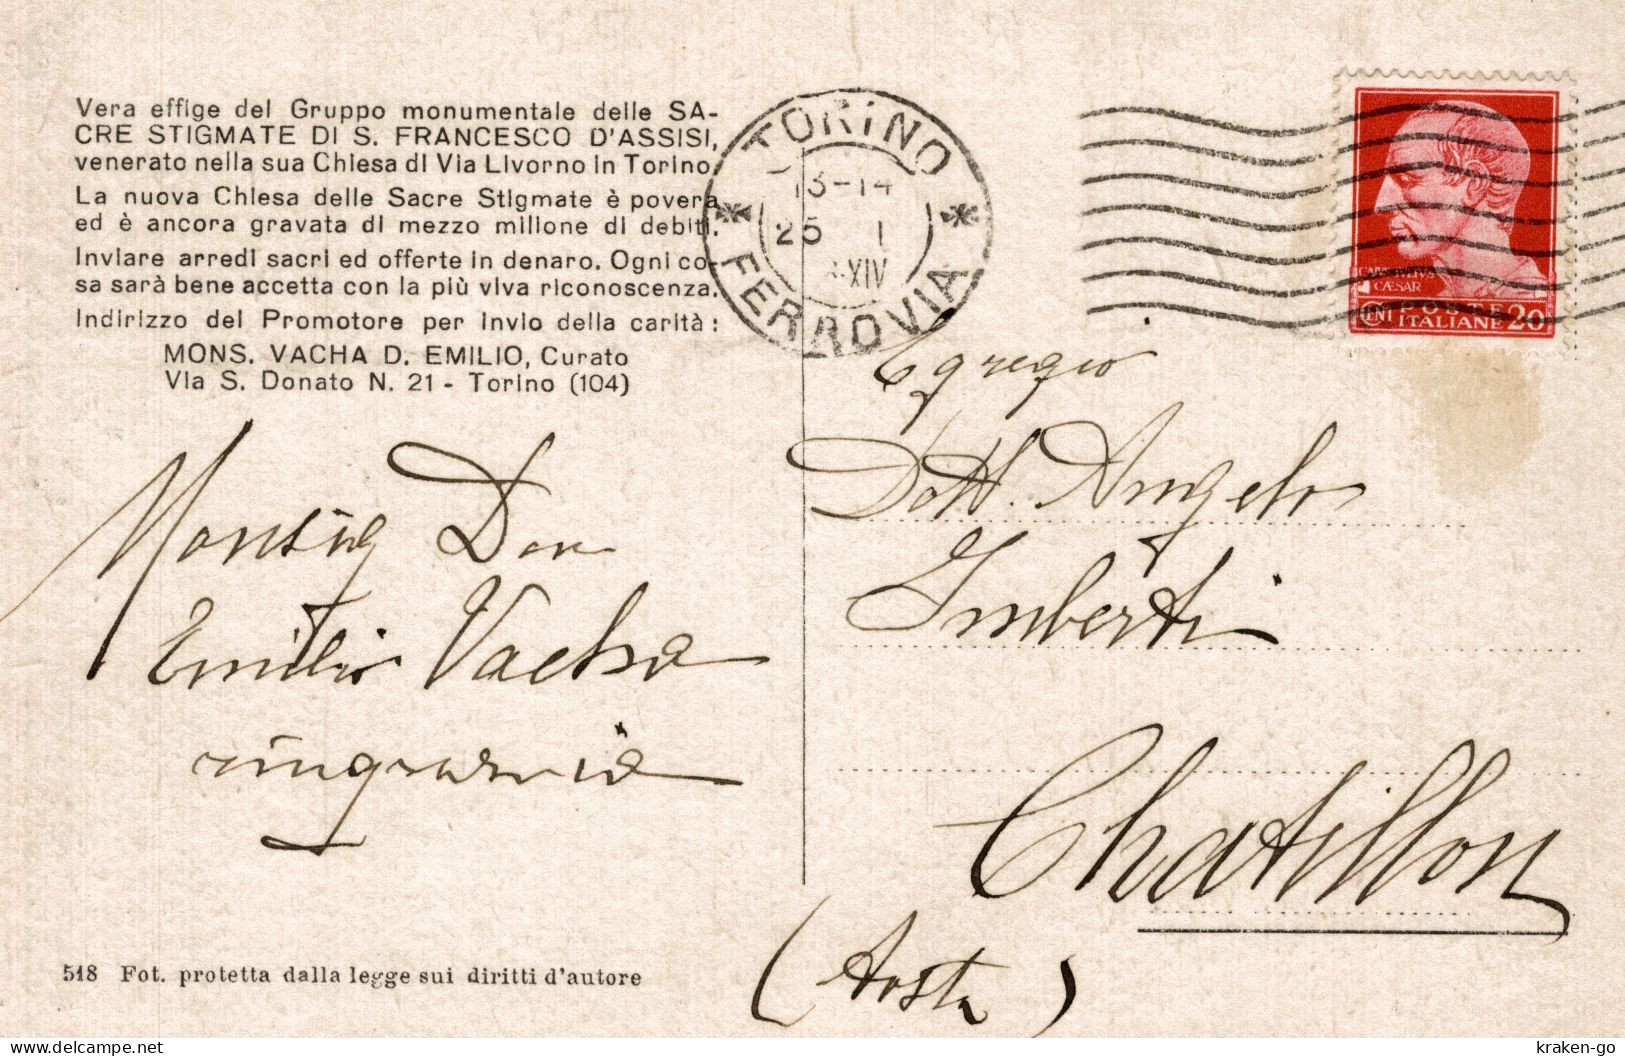 Vera effige del Gruppo monumentale delle SA-
CRE STIGMATE DI S. FRANCESCO D'ASSISI,
venerato nella sua Chiesa di Via Livorno in Torino.
La nuova Chiesa delle Sacre Stigmate è povera
ed è ancora gravata di mezzo milione di debiti.
Inviare arredi sacri ed offerte in denaro. Ogni co-
sa sarà bene accetta con la più viva riconoscenza.
Indirizzo del Promotore per invio della carità:
MONS. VACHA D. EMILIO, Curato
Via S. Donato N. 21 - Torino (104)
Monsig Don
Emilio Vacha
ringrazia
518 Fot. protetta dalla legge sui diritti d'autore
TORINO
13-14
25 I
XIV
* FERROVIA *
CAESAR
POSTE
CNI ITALIANE 20
Egregio
Dott. Angelo
Imberti
Chatillon
(Aosta)
kraken-go
Delcampe.net